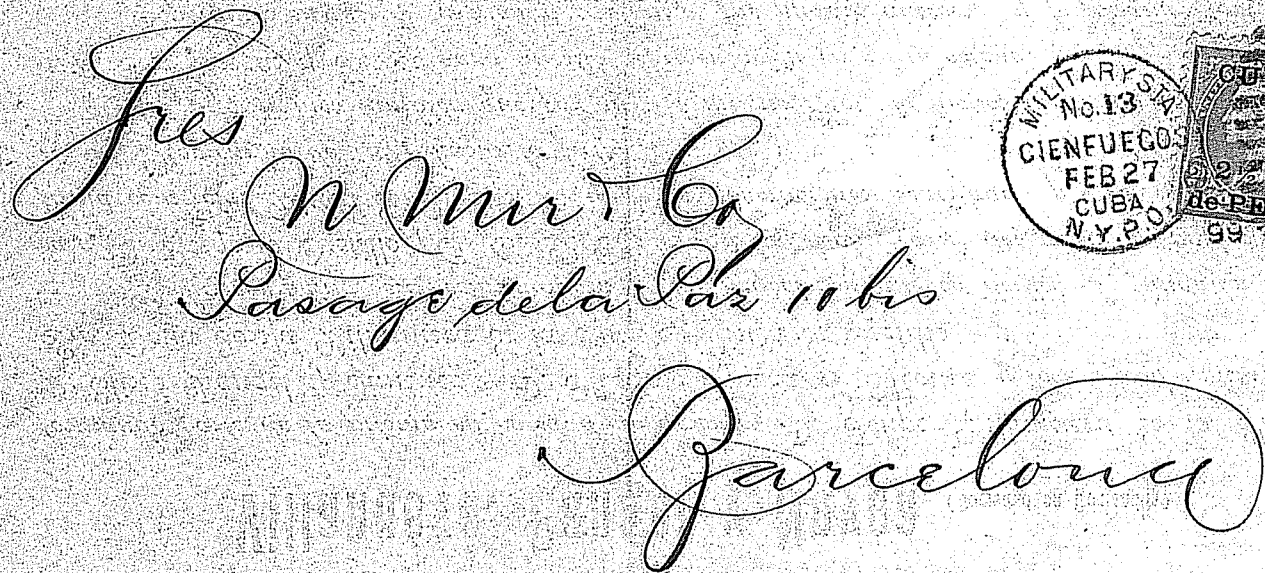 Sres
N Mir & Co
Pasage de la Paz 10 bis
Barcelona
MILITARY STA
No. 13
CIENFUEGOS
FEB 27
CUBA
N.Y.P.O.
99
CU
2
de PE